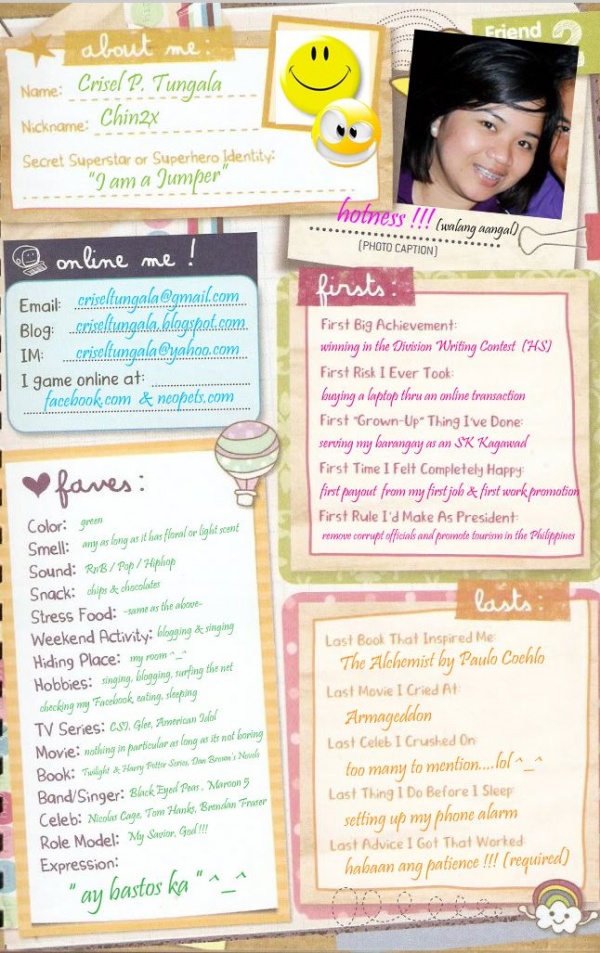 about me:
Name: Crisel P. Tungala
Nickname: Chin2x
Secret Superstar or Superhero Identity:
"I am a Jumper"
Friend 2
hotness !!! (walang aangal)
(PHOTO CAPTION)
online me !
Email: criseltungala@gmail.com
Blog: criseltungala.blogspot.com
IM: criseltungala@yahoo.com
I game online at:
facebook.com & neopets.com
firsts:
First Big Achievement:
winning in the Division Writing Contest (HS)
First Risk I Ever Took:
buying a laptop thru an online transaction
First "Grown-Up" Thing I've Done:
serving my barangay as an SK Kagawad
First Time I Felt Completely Happy:
first payout from my first job & first work promotion
First Rule I'd Make As President:
remove corrupt officials and promote tourism in the Philippines
faves:
Color: green
Smell: any as long as it has floral or light scent
Sound: RnB / Pop / Hiphop
Snack: chips & chocolates
Stress Food: -same as the above-
Weekend Activity: blogging & singing
Hiding Place: my room ^_^
Hobbies: singing, blogging, surfing the net
checking my Facebook, eating, sleeping
TV Series: CSI, Glee, American Idol
Movie: nothing in particular as long as its not boring
Book: Twilight & Harry Potter Series, Dan Brown's Novels
Band/Singer: Black Eyed Peas , Maroon 5
Celeb: Nicolas Cage, Tom Hanks, Brendan Fraser
Role Model: My Savior, God !!!
Expression:
" ay bastos ka " ^_^
lasts:
Last Book That Inspired Me:
The Alchemist by Paulo Coehlo
Last Movie I Cried At:
Armageddon
Last Celeb I Crushed On:
too many to mention....lol ^_^
Last Thing I Do Before I Sleep:
setting up my phone alarm
Last Advice I Got That Worked:
habaan ang patience !!! (required)